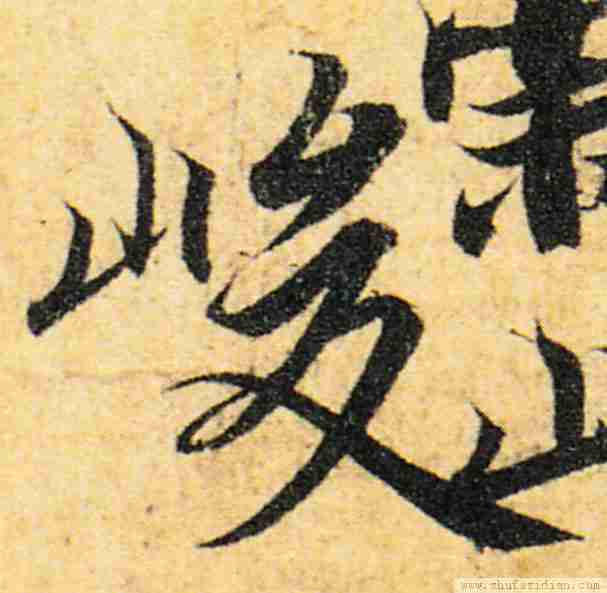 峻
www.shufazidian.com